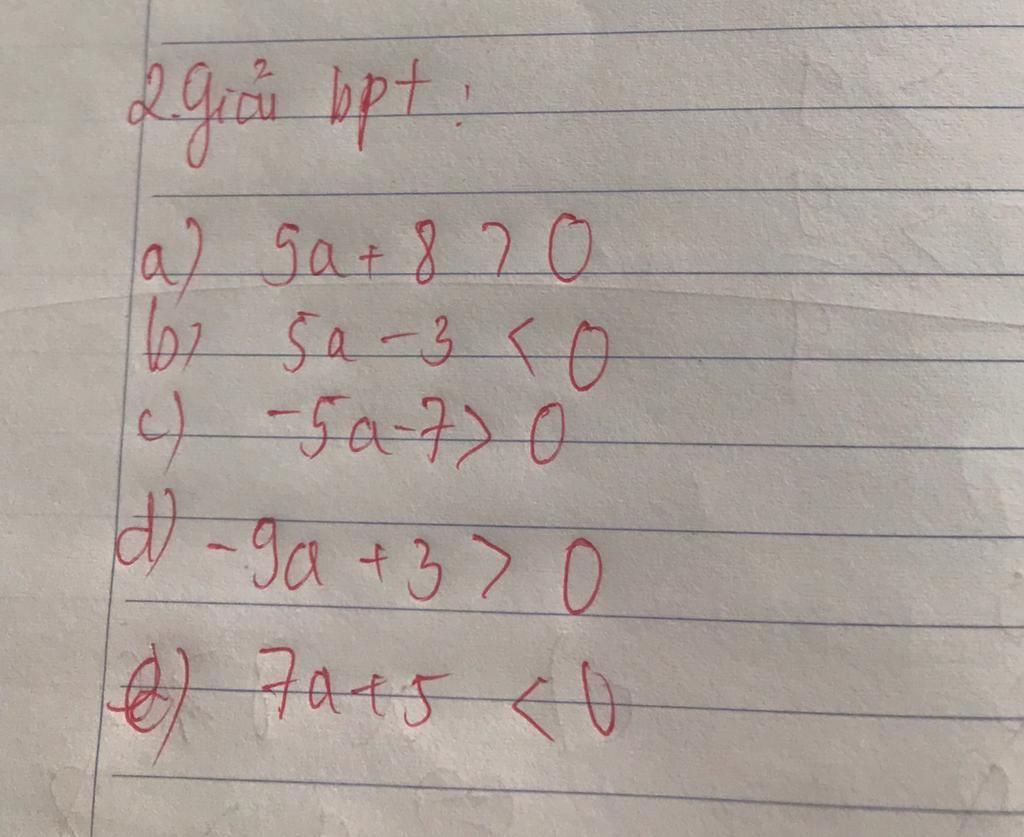 2. Giải bpt :
a) 5a + 8 > 0
b) 5a - 3 < 0
c) -5a - 7 > 0
d) -9a + 3 > 0
e) 7a + 5 < 0